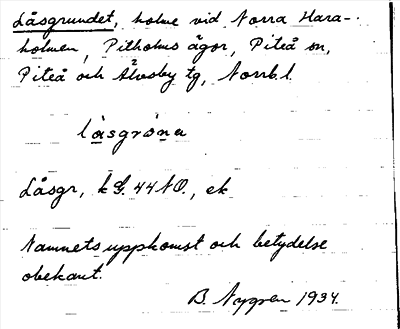 Låsgrundet, holme vid Norra Hara-
holmen, Pitholms ägor, Piteå sn,
Piteå och Älvsby tg, Norrb.l.
låsgröna
Låsgr, kG. 44 NO., ek
Namnets uppkomst och betydelse
obekant.
B. Nygren 1934.